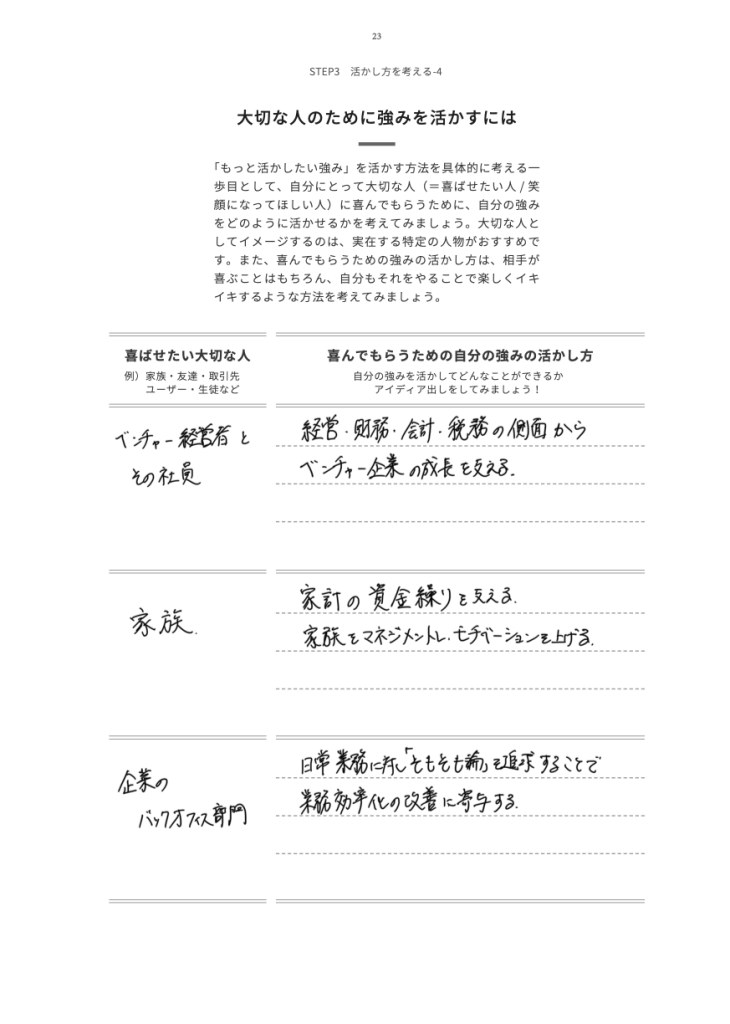 23
STEP3 活かし方を考える-4
大切な人のために強みを活かすには
「もっと活かしたい強み」を活かす方法を具体的に考える一
歩目として、自分にとって大切な人（＝喜ばせたい人 / 笑
顔になってほしい人）に喜んでもらうために、自分の強み
をどのように活かせるかを考えてみましょう。大切な人と
してイメージするのは、実在する特定の人物がおすすめで
す。また、喜んでもらうための強みの活かし方は、相手が
喜ぶことはもちろん、自分もそれをやることで楽しくイキ
イキするような方法を考えてみましょう。
喜ばせたい大切な人
例）家族・友達・取引先
ユーザー・生徒など
喜んでもらうための自分の強みの活かし方
自分の強みを活かしてどんなことができるか
アイディア出しをしてみましょう！
ベンチャー経営者と
その社員
経営・財務・会計・税務の側面から
ベンチャー企業の成長を支える.
家族.
家計の資金繰りを支える.
家族をマネジメントし.モチベーションを上げる.
企業の
バックオフィス専門
日常業務に対し「そもそも論」を追求することで
業務効率化の改善に寄与する.